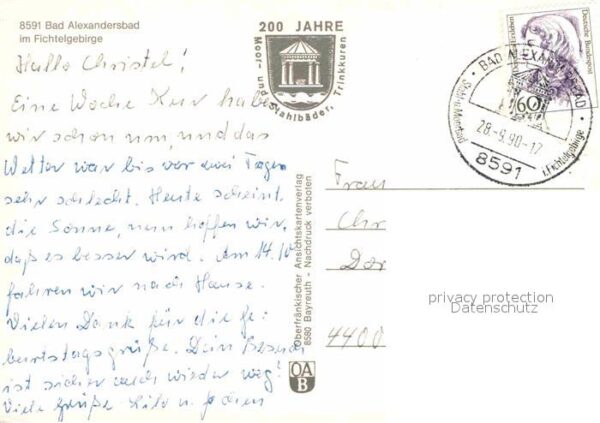 8591 Bad Alexandersbad
im Fichtelgebirge
Hallo Christel!
Eine Woche Kur habe
wir schon um, und das
Wetter war bis vor zwei Tagen
sehr schlecht. Heute scheint
die Sonne, nun hoffen wir,
daß es besser wird. Am 14.10
fahren wir nach Hause.
Vielen Dank für die Ge-
burtstagsgrüße. Dein Besuch
ist sicher auch wieder weg?
Viele Grüße
200 JAHRE
Moor- und Stahlbäder, Trinkkuren
Oberfränkischer Ansichtskartenverlag
8580 Bayreuth - Nachdruck verboten
OA
B
Deutsche Bundespost
60
BAD ALEXANDERSBAD
28-9.90-17
i. Fichtelgebirge
8591
Frau
Chr
Dor
4400
privacy protection
Datenschutz